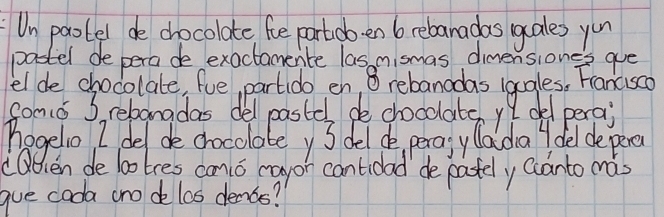 Un pastel de chocolate fue partido en 6 rebanadas iguales y un
pastel de pera de exactamente las mismas dimensiones que
el de chocolate, fue partido en 8 rebanadas iguales. Francisco
comió 3 rebanadas del pastel de chocolate y 2 del pera;
Rogelio 2 del de chocolate y 3 del de pera; y Claudia 4 del de pera
¿Quién de los tres comió mayor cantidad de pastel y cuánto más
que cada uno de los demás?